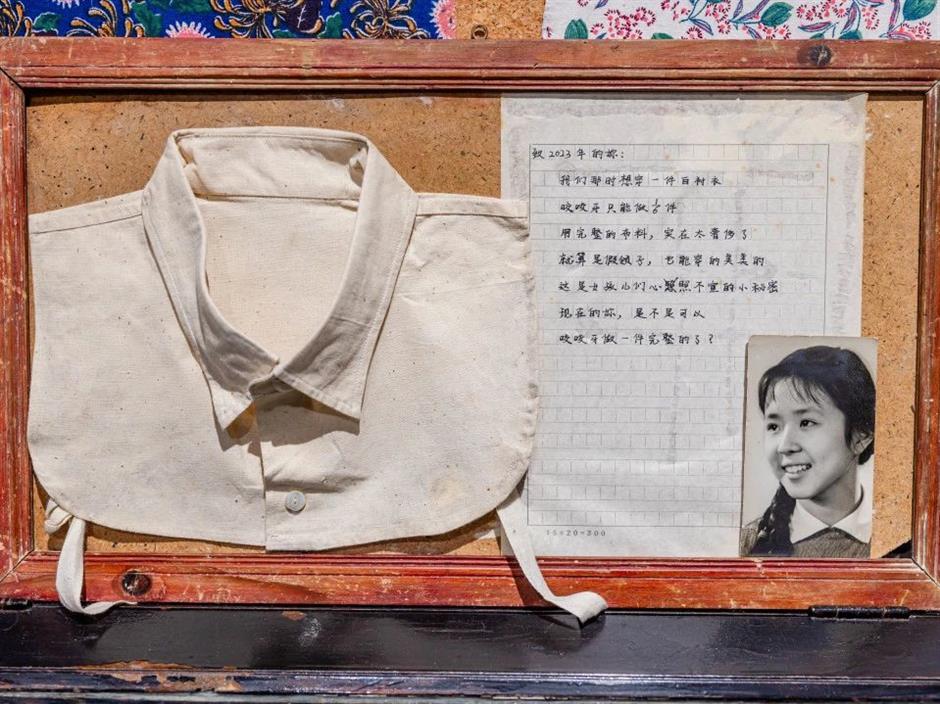 致2023年的妳：
我们那时想穿一件白衬衣
咬咬牙只能做半件
用完整的布料，实在太奢侈了
就算是假领子，也能穿的美美的
这是女孩儿们心照不宣的小秘密
现在的妳，是不是可以
咬咬牙做一件完整的了？
15×20=300